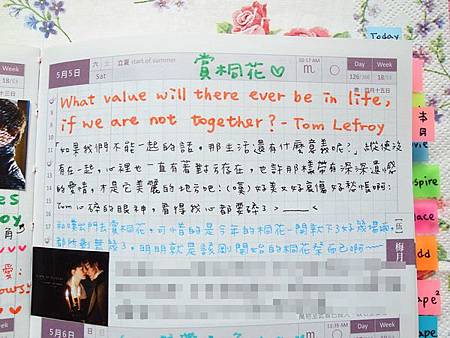 Today
Week
18/53
5月5日
六
Sat
立夏 start of summer
賞桐花
10:17 AM
m
Day
126/366
Week
18/53
四月十五日
What value will there ever be in life,
if we are not together? - Tom Lefroy
「如果我們不能一起的話,那生活還有什麼意義呢?」縱使沒
有在一起,心裡也一直有著對方存在,也許那樣帶有深深遺憾
的愛情,才是它美麗的地方吧:(嘆)好美又好哀傷好愁悵啊:
Tom心碎的眼神,看得我心都要碎了>____<
門去賞桐花,可惜的是今年的桐花一開就下了好幾場雨,
都所剩無幾了,明明就是該剛開始的桐花祭而已啊~~
梅月
5月6日
日
11:35 AM
Day
Week
本
月
spire
lace
dd
ape
ape²